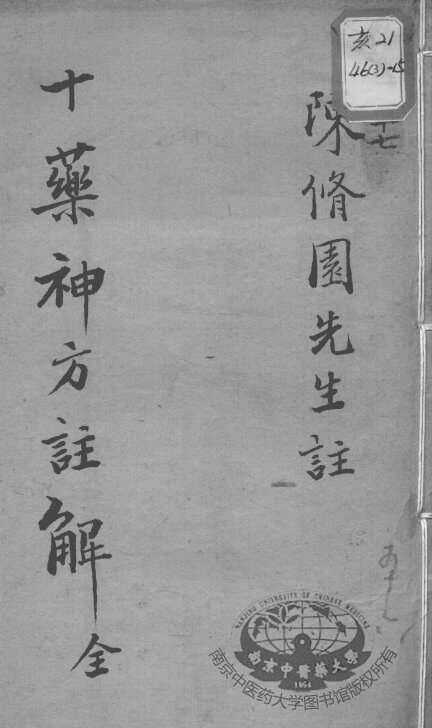 亥21
46(3)-15
十七
陳脩園先生註
十藥神方註解 全
五十七
NANJING UNIVERSITY OF CHINESE MEDICINE
南京中醫藥大學
1954
南京中医药大学图书馆版权所有